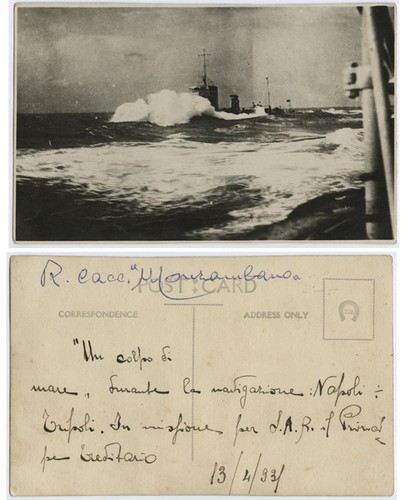 R. Cacc. "Monzambano"
POST CARD
CORRESPONDENCE
ADDRESS ONLY
"Un colpo di
mare„ durante la navigazione: Napoli ÷
Tripoli. In missione per S.A.R. il Princi
pe Ereditario
13/4/931